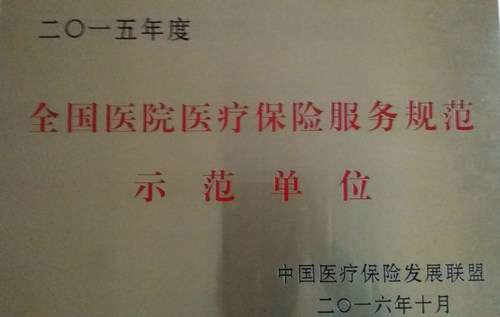 二〇一五年度
全国医院医疗保险服务规范
示范单位
中国医疗保险发展联盟
二〇一六年十月